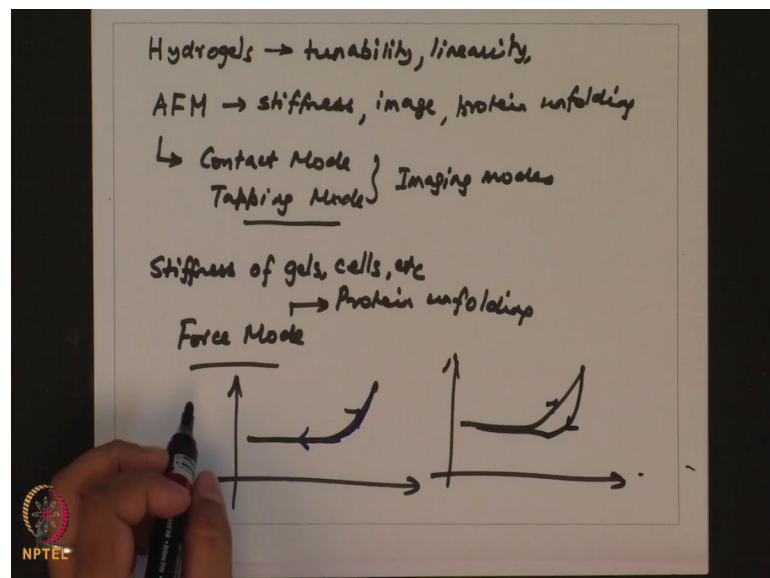 Hydrogels → tunability, linearity,
AFM → stiffness, image, protein unfolding
↳ Contact Mode
Tapping Mode } Imaging modes
Stiffness of gels, cells, etc
→ Protein unfolding
Force Mode
NPTEL